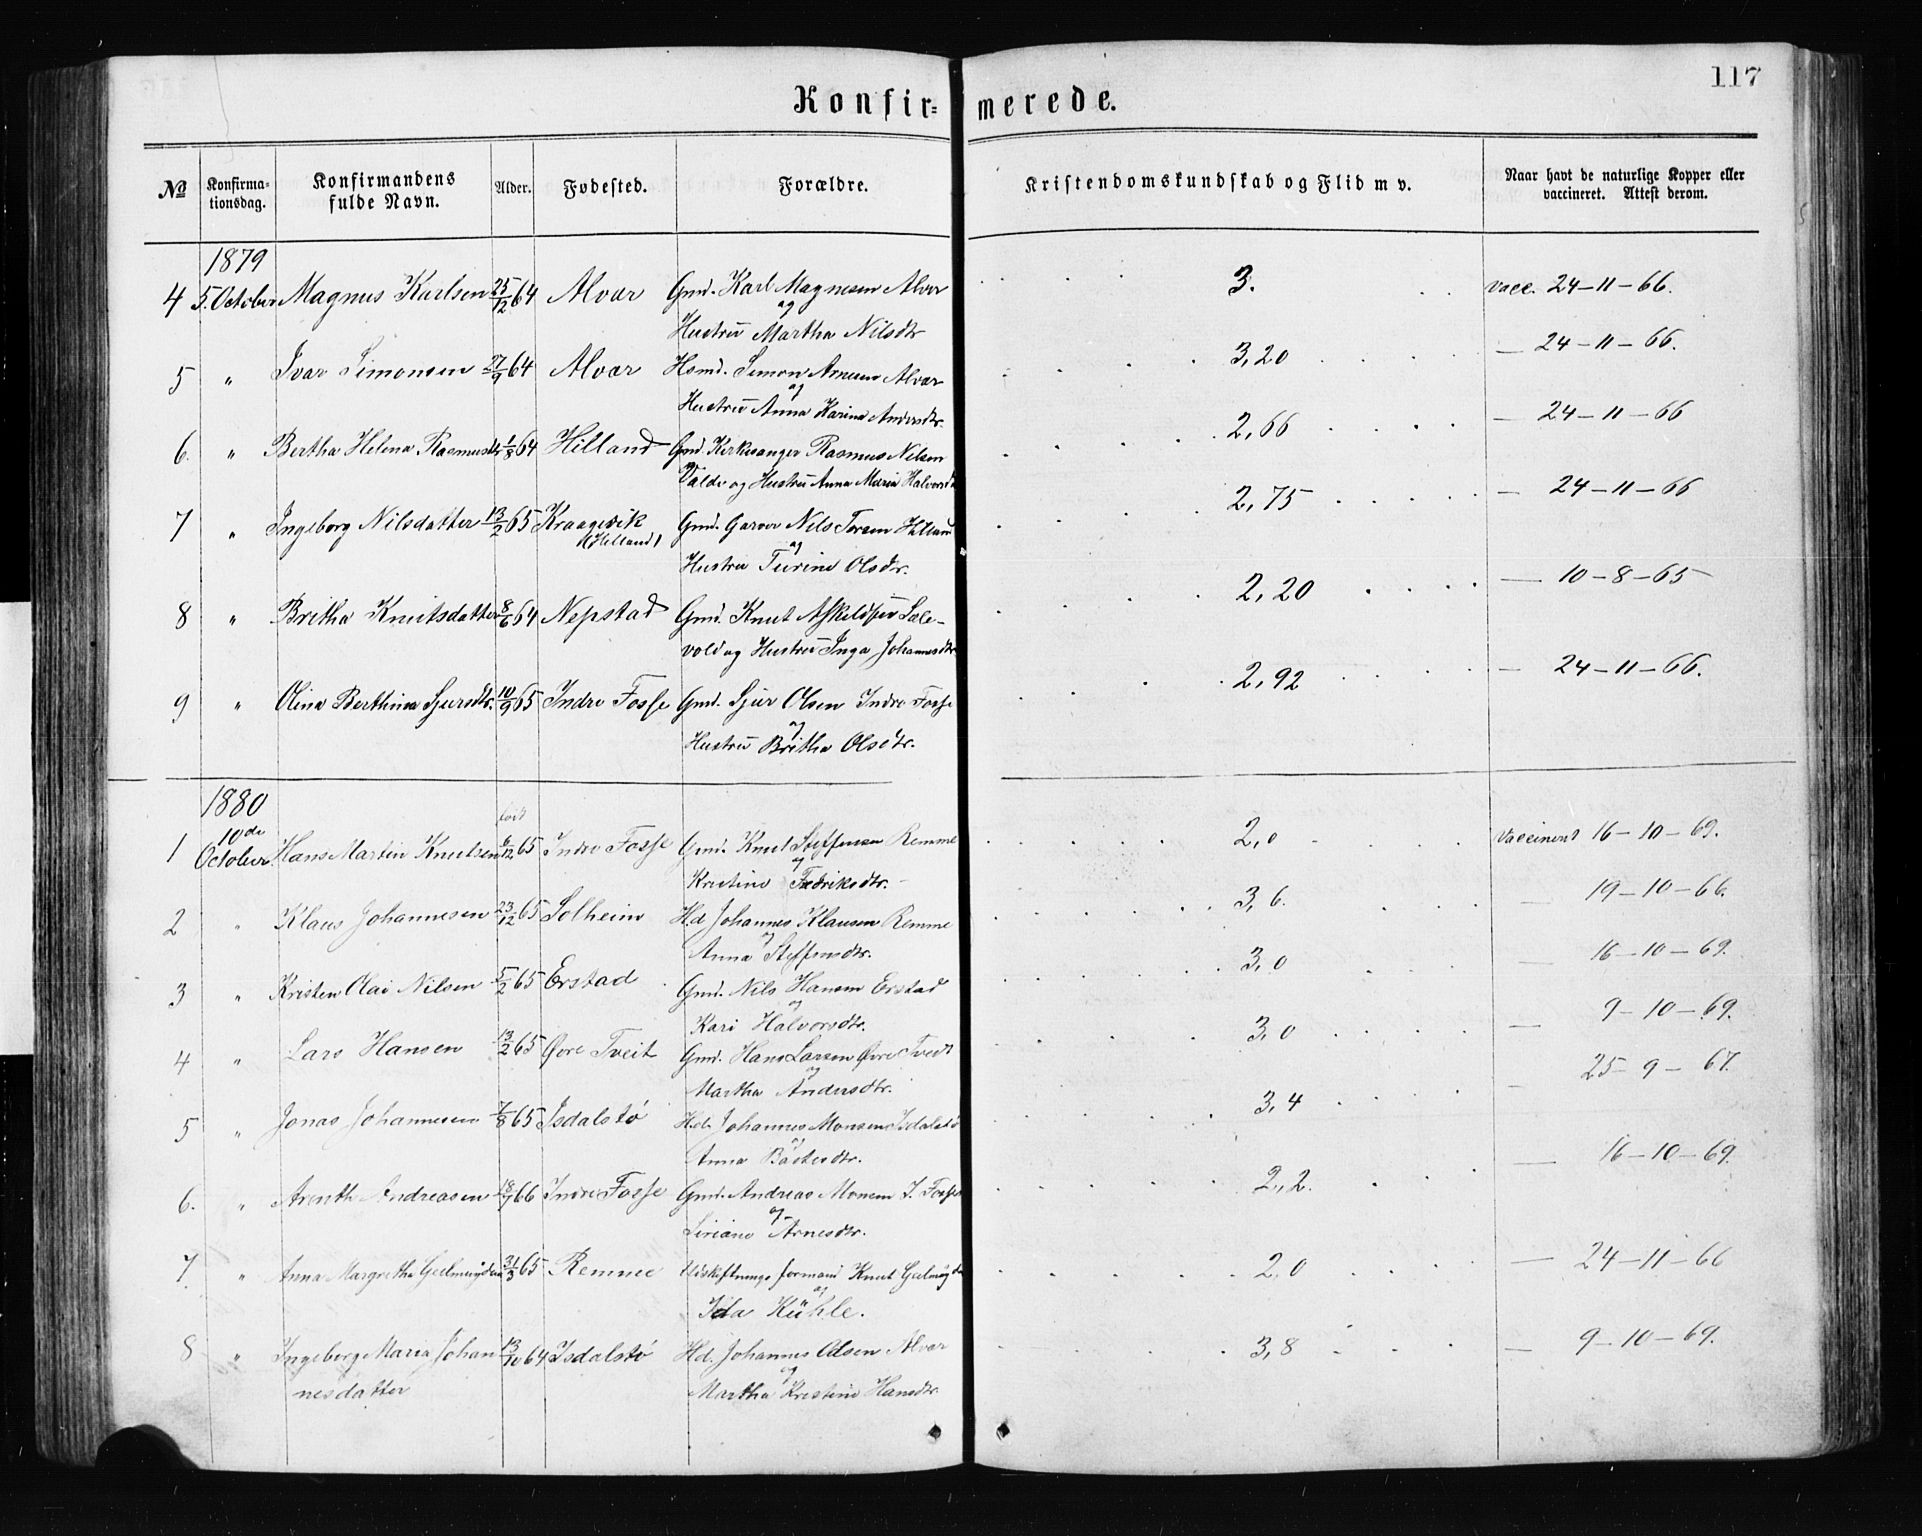 117
Konfir- merede.
№ Konfirma-tionsdag. Konfirmandens fulde Navn. Alder. Fødested. Forældre. Kristendomskundskab og Flid m v. Naar havt de naturlige Kopper eller vaccineret. Attest derom.
1879
4 5. October Magnus Karlsen 25/12 64 Alvær Gmd. Karl Magnesen Alvær 3. vacc. 24-11-66.
og Hustru Martha Nilsdtr
5 " Ivar Simonsen 27/9 64 Alvær Hsmd. Simon Arnesen Alvær 3,20 — 24-11-66.
og Hustru Anna Karina Andersdtr.
6. " Bertha Helena Rasmusdtr 1/8 64 Hilland Gmd. Kirkesanger Rasmus Nilsen 2,66 — 24-11-66
Valde og Hustru Anna Maria Halvorsdtr
7 " Ingeborg Nilsdatter 13/2 65 Kraagevik Gmd. Garver Nils Torsen Hilland 2,75 — 24-11-66
(Hilland) og
Hustru Turine Olsdtr.
8 " Britha Knutsdatter 8/6 64 Nepstad Gmd. Knut Askeldsen Sole- 2,20 — 10-8-65
vold og Hustru Inga Johannesdtr.
9 " Olina Berthina Sjursdtr. 10/9 65 Indre Fosse Gmd. Sjur Olsen Indre Fosse 2,92 — 24-11-66.
og Hustru Britha Olsdtr.
1880
født
1 10de October Hans Martin Knutsen 6/12 65 Indre Fosse Gmd. Knut Steffensen Remme 2,0 Vaccineret 16-10-69.
og Kristine Fredriksdtr.
2 " Klaus Johannesen 23/12 65 Solheim Hd. Johannes Klausen Remme 3,6. — 19-10-66.
og Anna Steffensdtr.
3 " Kristen Olai Nilsen 5/2 65 Erstad Gmd. Nils Hansen Erstad 3,0 — 16-10-69.
og Kari Halvorsdtr.
4 " Lars Hansen 13/2 65 Øvre Tveit Gmd. Hans Larsen Øvre Tvedt 3,0 — 9-10-69.
og Martha Andersdtr.
5 " Jonas Johannesen 7/8 65 Isdalstø Hd. Johannes Monsen Isdalstø 3,4 — 25-9-67.
og Anna Bastesdtr.
6. " Arenth Andreasen 18/7 66 Indre Fosse Gmd. Andreas Monsen I. Fosse 2,2. — 16-10-69.
og Siriane Arnesdtr.
7. " Anna Margretha Geelmuyden 31/3 65 Remme Udskiftnings formand Knut Geelmuyden 2,0 — 24-11-66
og Ida Kühle.
8 " Ingeborg Maria Johan 13/10 64 Isdalstø Hd. Johannes Olsen Alvær 3,8 — 9-10-69.
nesdatter og Martha Kristine Hansdtr.